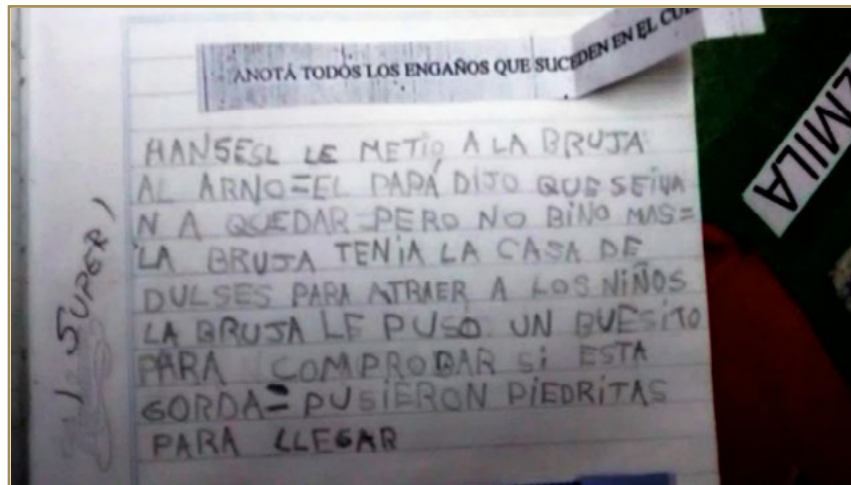 ANOTÁ TODOS LOS ENGAÑOS QUE SUCEDEN EN EL
HANSESL LE METIO A LA BRUJA
AL ARNO=EL PAPÁ DIJO QUE SEIVA
N A QUEDAR=PERO NO BINO MAS=
LA BRUJA TENIA LA CASA DE
DULSES PARA ATRAER A LOS NIÑOS
LA BRUJA LE PUSO UN BUESITO
PARA COMPROBAR SI ESTA
GORDA=PUSIERON PIEDRITAS
PARA LLEGAR
¡SUPER!
ZMILA